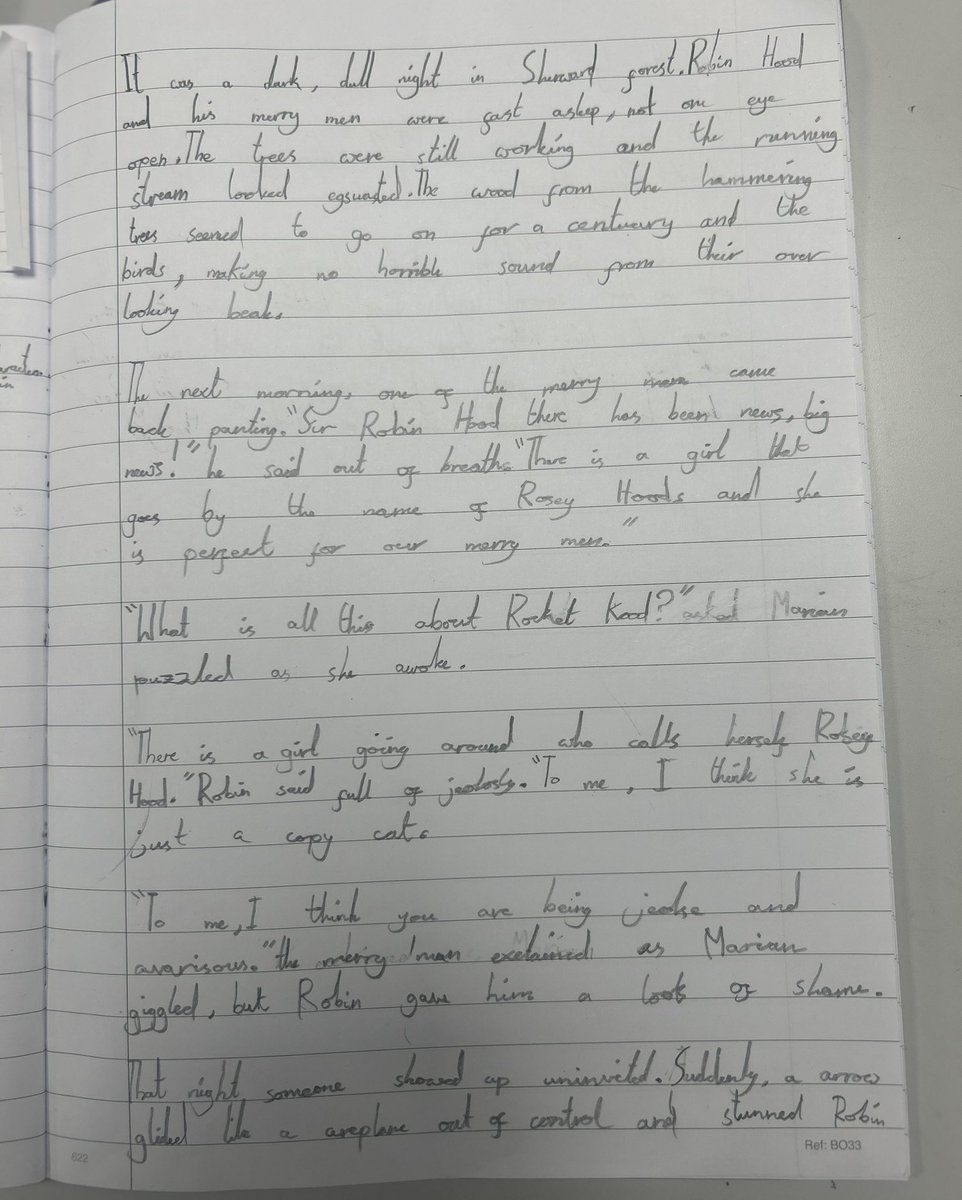 It was a dark, dull night in Sherward forest. Robin Hood
and his merry men were fast asleep, not one eye
open. The trees were still working and the running
stream looked egsuasted. The wood from the hammering
trees seemed to go on for a centuary and the
birds, making no horrible sound from their over
looking beak.
The next morning, one of the merry men came
back, panting. "Sir Robin Hood there has been news, big
news!" he said out of breath. "There is a girl that
goes by the name of Rosey Hoods and she
is perfect for our merry men."
"What is all this about Rocket Kood?" asked Marian
puzzled as she awoke.
"There is a girl going around who calls herself Rosey
Hood." Robin said full of "To me, I think she is
just a copy cat.
"To me, I think you are being jealse and
avarisous." the merry man exclaimed as Marian
giggled, but Robin gave him a look of shame.
That night, someone showed up uninvited. Suddenly, a arrow
glided like a areplane out of control and stunned Robin
622
Ref: BO33